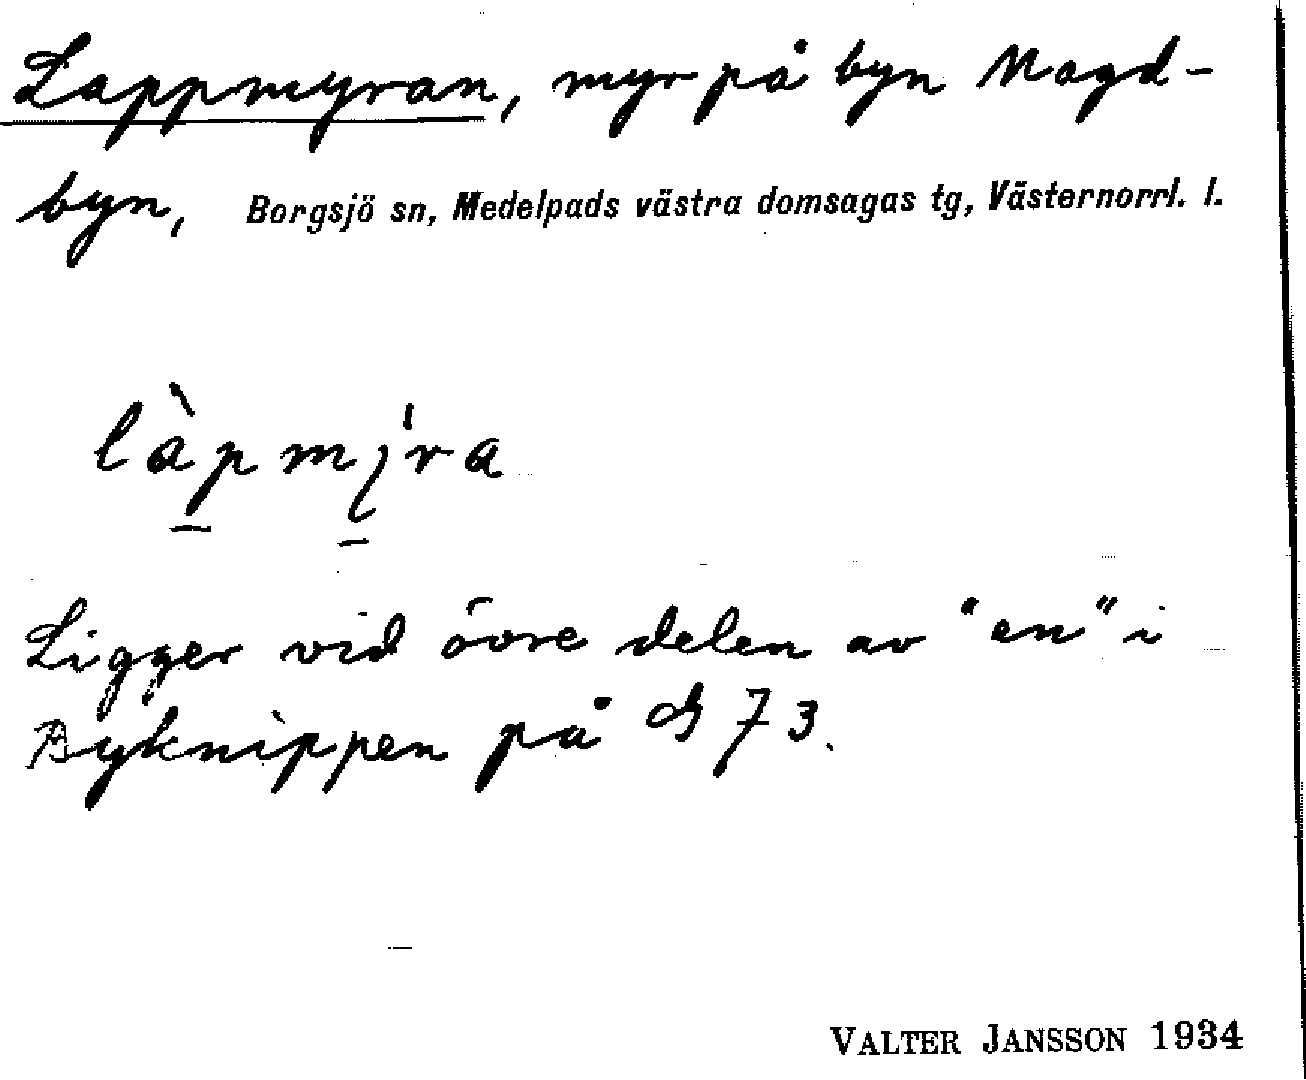 Lappmyran, myr på byn Magd-
byn, Borgsjö sn, Medelpads västra domsagas tg, Västernorrl. l.
làpmy̍ra
Ligger vid övre delen av "en" i
Byknippen på 73.
VALTER JANSSON 1934